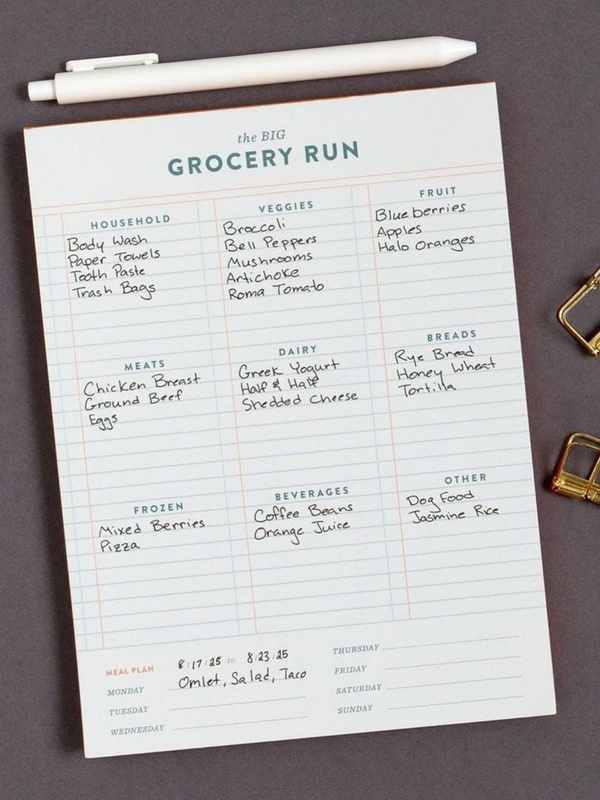 the BIG
GROCERY RUN
HOUSEHOLD
Body Wash
Paper Towels
Tooth Paste
Trash Bags
VEGGIES
Broccoli
Bell Peppers
Mushrooms
Artichoke
Roma Tomato
FRUIT
Blueberries
Apples
Halo Oranges
MEATS
Chicken Breast
Ground Beef
Eggs
DAIRY
Greek Yogurt
Half & Half
Shedded Cheese
BREADS
Rye Bread
Honey Wheat
Tortilla
FROZEN
Mixed Berries
Pizza
BEVERAGES
Coffee Beans
Orange Juice
OTHER
Dog Food
Jasmine Rice
MEAL PLAN 8/17/25 to 8/23/25
MONDAY Omlet, Salad, Taco
TUESDAY
WEDNESDAY
THURSDAY
FRIDAY
SATURDAY
SUNDAY